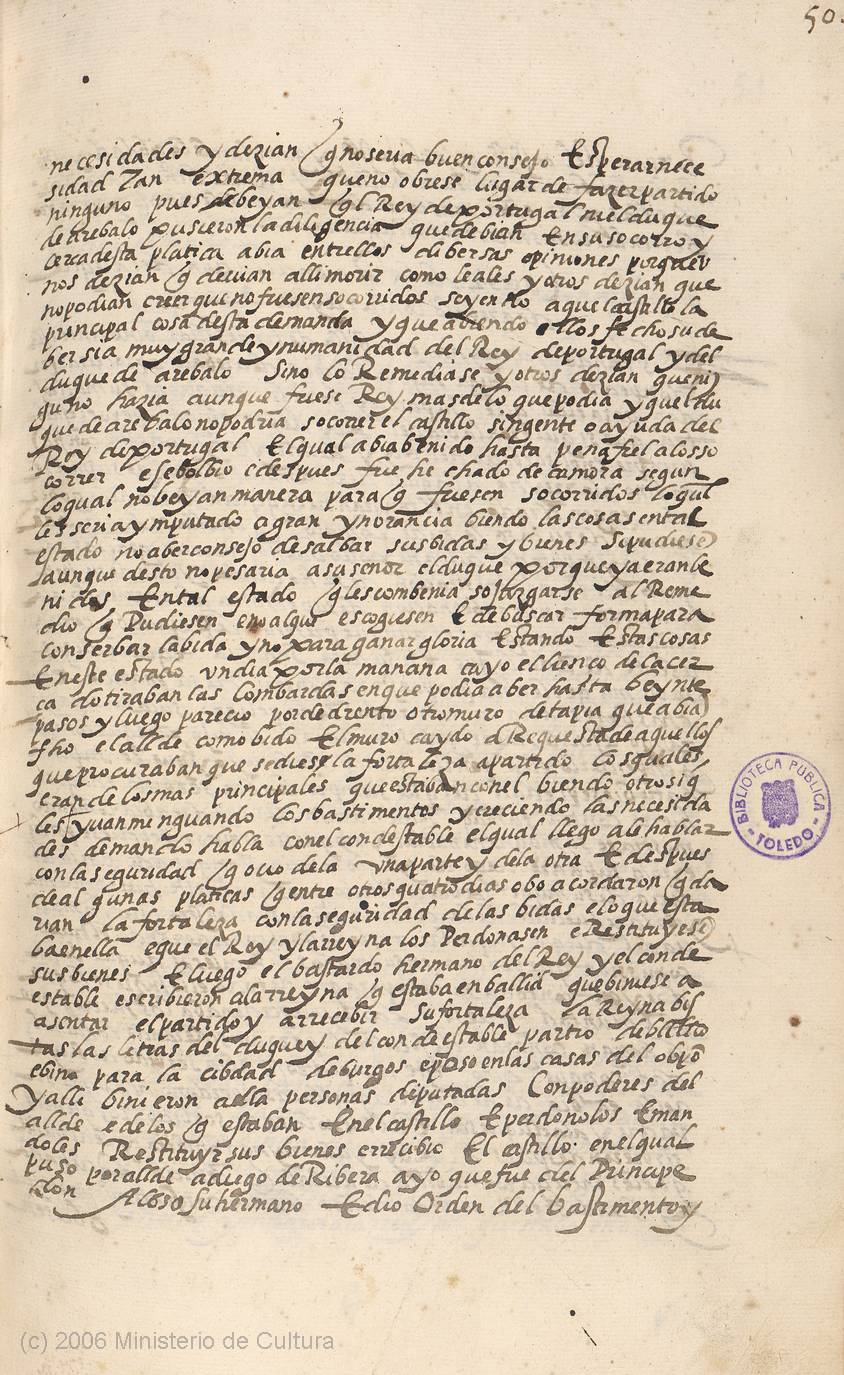 50.
necesidades y dezian q no seria buen consejo Esperar nece
sidad Tan extrema que no obiese lugar de fazer partido
ninguno pues debeyan ql Rey de portugal ni el duque
de arebalo pusieron la diligencia que debian En su socorro y
cerca desta platica abia entrellos dibersas opiniones porque v
nos dezian q devian alli morir como leales y otros dezian que
no podian creer que no fuesen socorridos seyendo aquel castillo la
principal cosa desta demanda y que abiendo ellos fecho su de
ber sia muy grande ynumanidad del Rey de portugal y del
duque de arebalo Sino lo Remediase y otros dezian que nin
guno hazia aunque fuese Rey mas de lo que podia y quel du
que de arebalo no podria socorrer el castillo sin gente o ayuda del
Rey de portugal El qual abia benido hasta penafiel a los so
correr e se bolbio e despues fue hechado de camora segun
lo qual no beyan manera para q fuesen socorridos lo qual
les seria ymputado a gran ynorancia biendo las cosas en tal
estado no aber consejo de salbar sus bidas y bienes si pudiese
aunque desto no pesaria a su senor el duque porque ya eran be
nidos En tal estado q les combenia sojuzgarse al Reme
dio q Pudiesen eno al que escogiesen E de buscar forma para
conserbar la bida y no para ganar gloria Estando Estas cosas
En este estado un dia por la manana cayo el lienco de la cer
ca do tiraban las lombardas en que podia aber hasta beynte
pasos y luego parecio por de drento otro muro de tapia que abia
fho el allde como bido El muro caydo a Requesta de aquellos
que procuraban que se diese la fortaleza a partido los quales
eran de los mas principales que estaban con el biendo otrosi q
les yuan menguando los bastimentos y creciendo las necesida
des demando habla con el condestable el qual llego a le hablar
con la seguridad q ovo de la una parte y de la otra E despues
de algunas platicas q entre otros quatro dias obo acordaron q da
rian la fortaleza con la seguridad de las bidas e lo que esta
ba en ella e que el Rey y la rreyna los Perdonasen e Restituyese
sus bienes E luego el bastardo hermano del Rey y el conde
estable escribieron a la rreyna q estaba en ballid que biniese a
asentar el partido y a rrecebir su fortaleza la Reyna bis
tas las letras del duque y del condeestable partio de ballid
e bino para la cibdad de burgos e poso en las casas del obpo
y alli binieron a ella personas diputadas Con poderes del
allde e de los q estaban En el castillo E perdonolos E man
doles Restituyr sus bienes e rrecibio El castillo en el qual
puso por allde a diego de Ribera ayo que fue del Principe
don Aloso su hermano E dio Orden del bastimento y
BIBLIOTECA PÚBLICA
- TOLEDO -
(c) 2006 Ministerio de Cultura